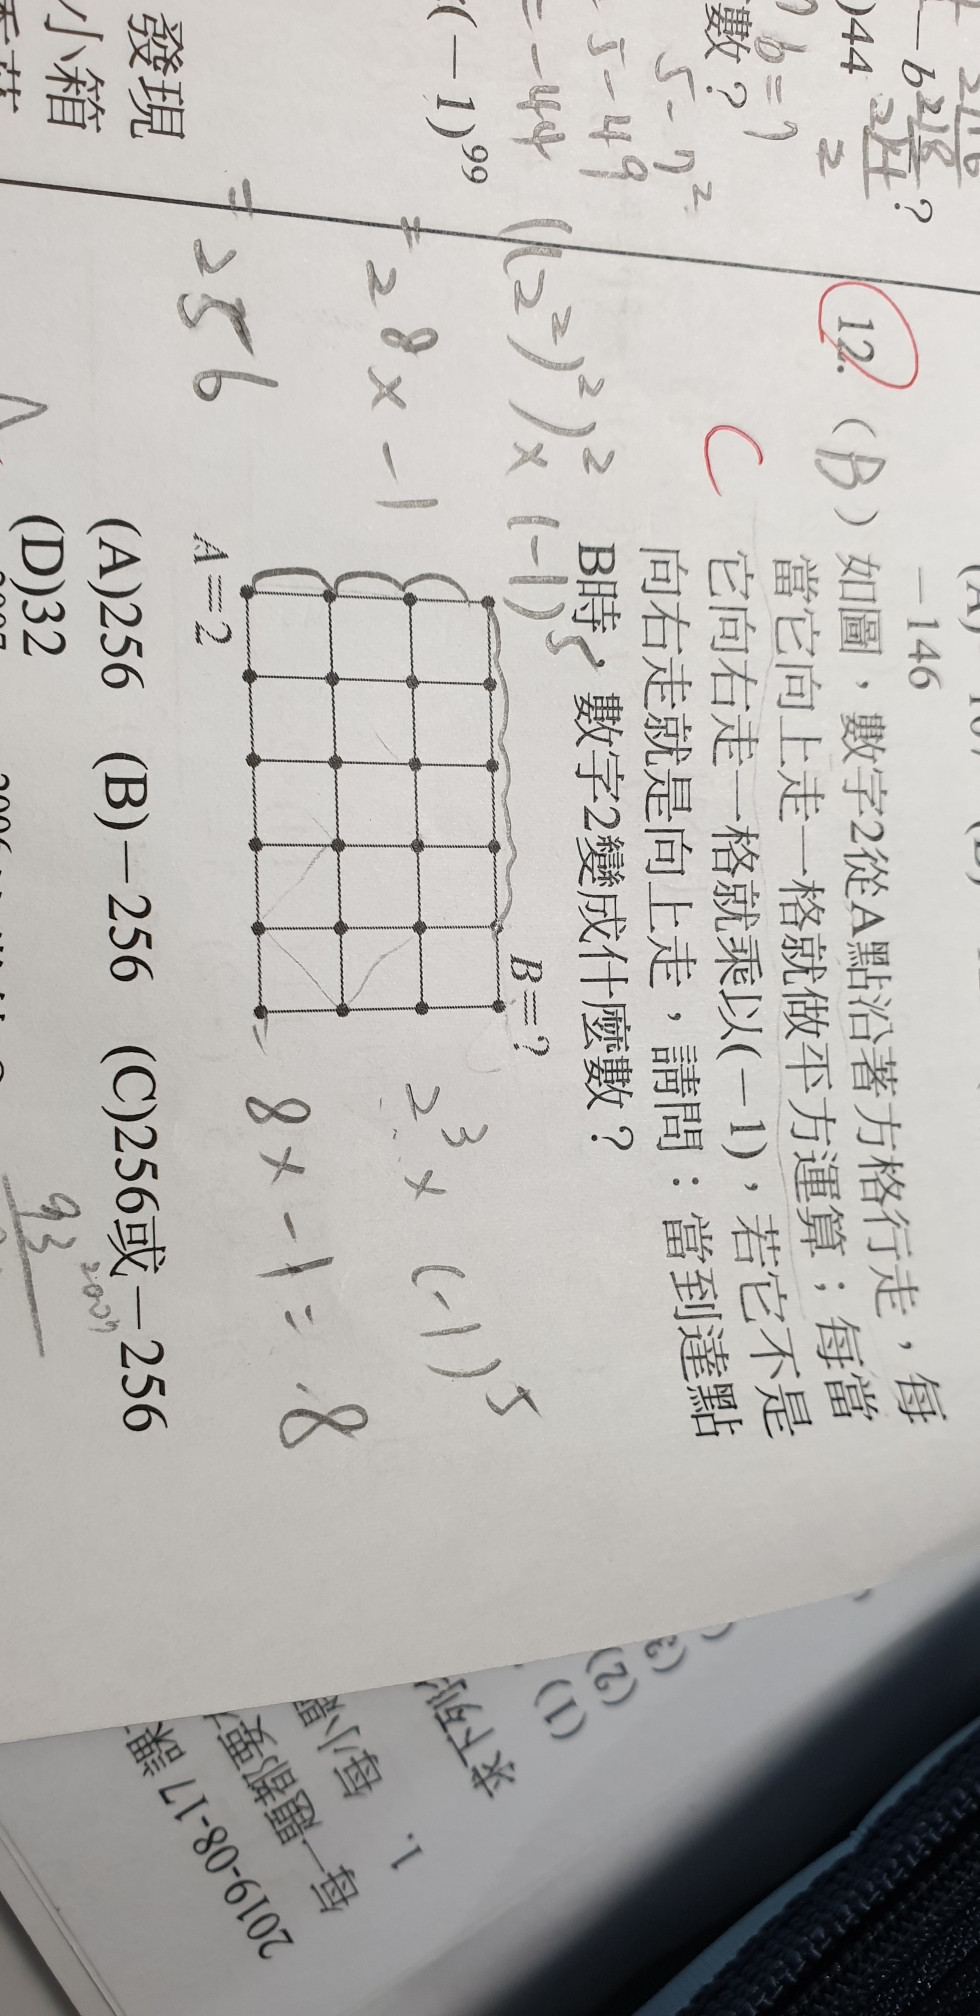 －146
12. (B) 如圖，數字2從A點沿著方格行走，每
當它向上走一格就做平方運算；每當
它向右走一格就乘以(－1)，若它不是
向右走就是向上走，請問：當到達點
B時，數字2變成什麼數？
C
B=?
A=2
(A)256 (B)－256 (C)256或－256
(D)32
((2²)²)² × (-1)⁵
= 2⁸ × -1
= 256
2³ × (-1)⁵
8 × -1 = -8
)44
b=7
數？
5-7²
5-49
=-44
(－1)⁹⁹
發現
小箱
93
1.
求下列
(1)
(2)
(3)
每小題
每一題都要
2019-08-17 課